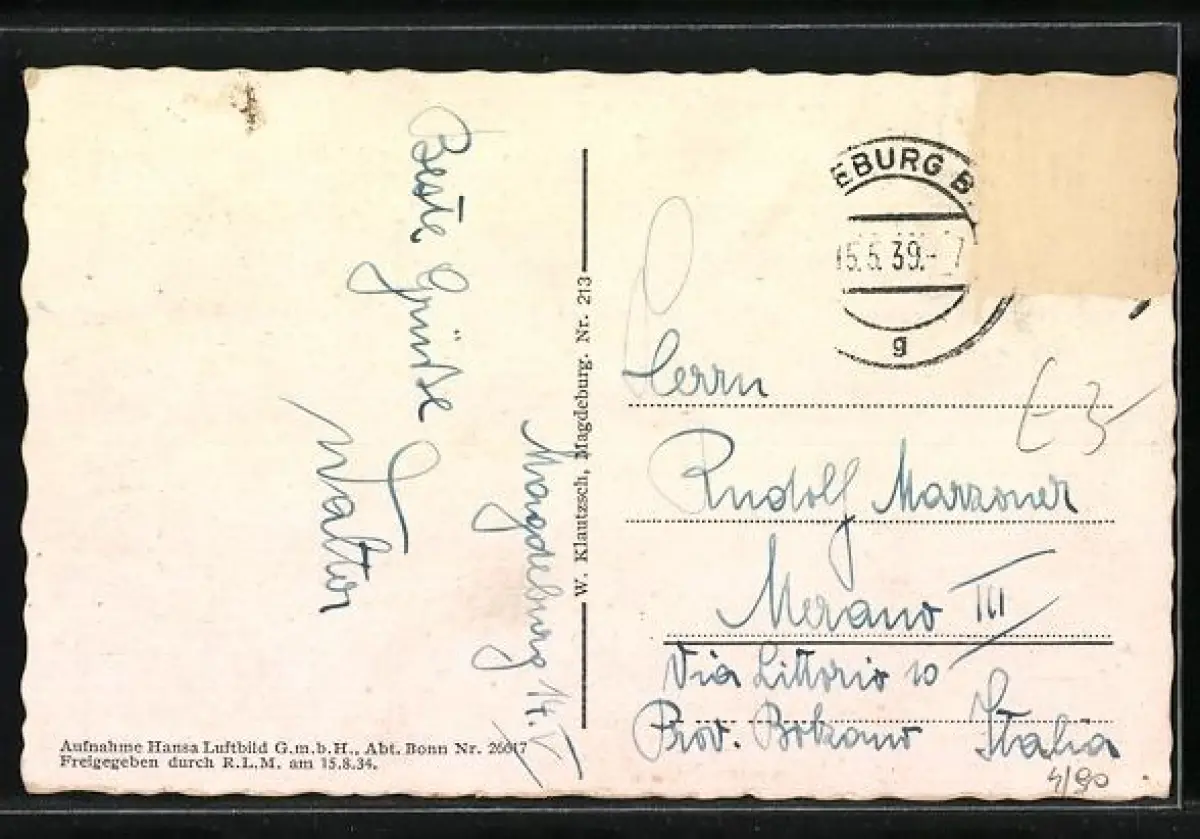 Magdeburg 14. V
Beste Grüße
Walter
W. Klautzsch, Magdeburg. Nr. 213
Aufnahme Hansa Luftbild G.m.b.H., Abt. Bonn Nr. 26617
Freigegeben durch R.L.M. am 15.8.34.
EBURG B
15.5.39.- 7
g
Herrn
E3
Rudolf Marzoner
Merano III
Via Littorio 10
Prov. Bolzano Italia
4/90